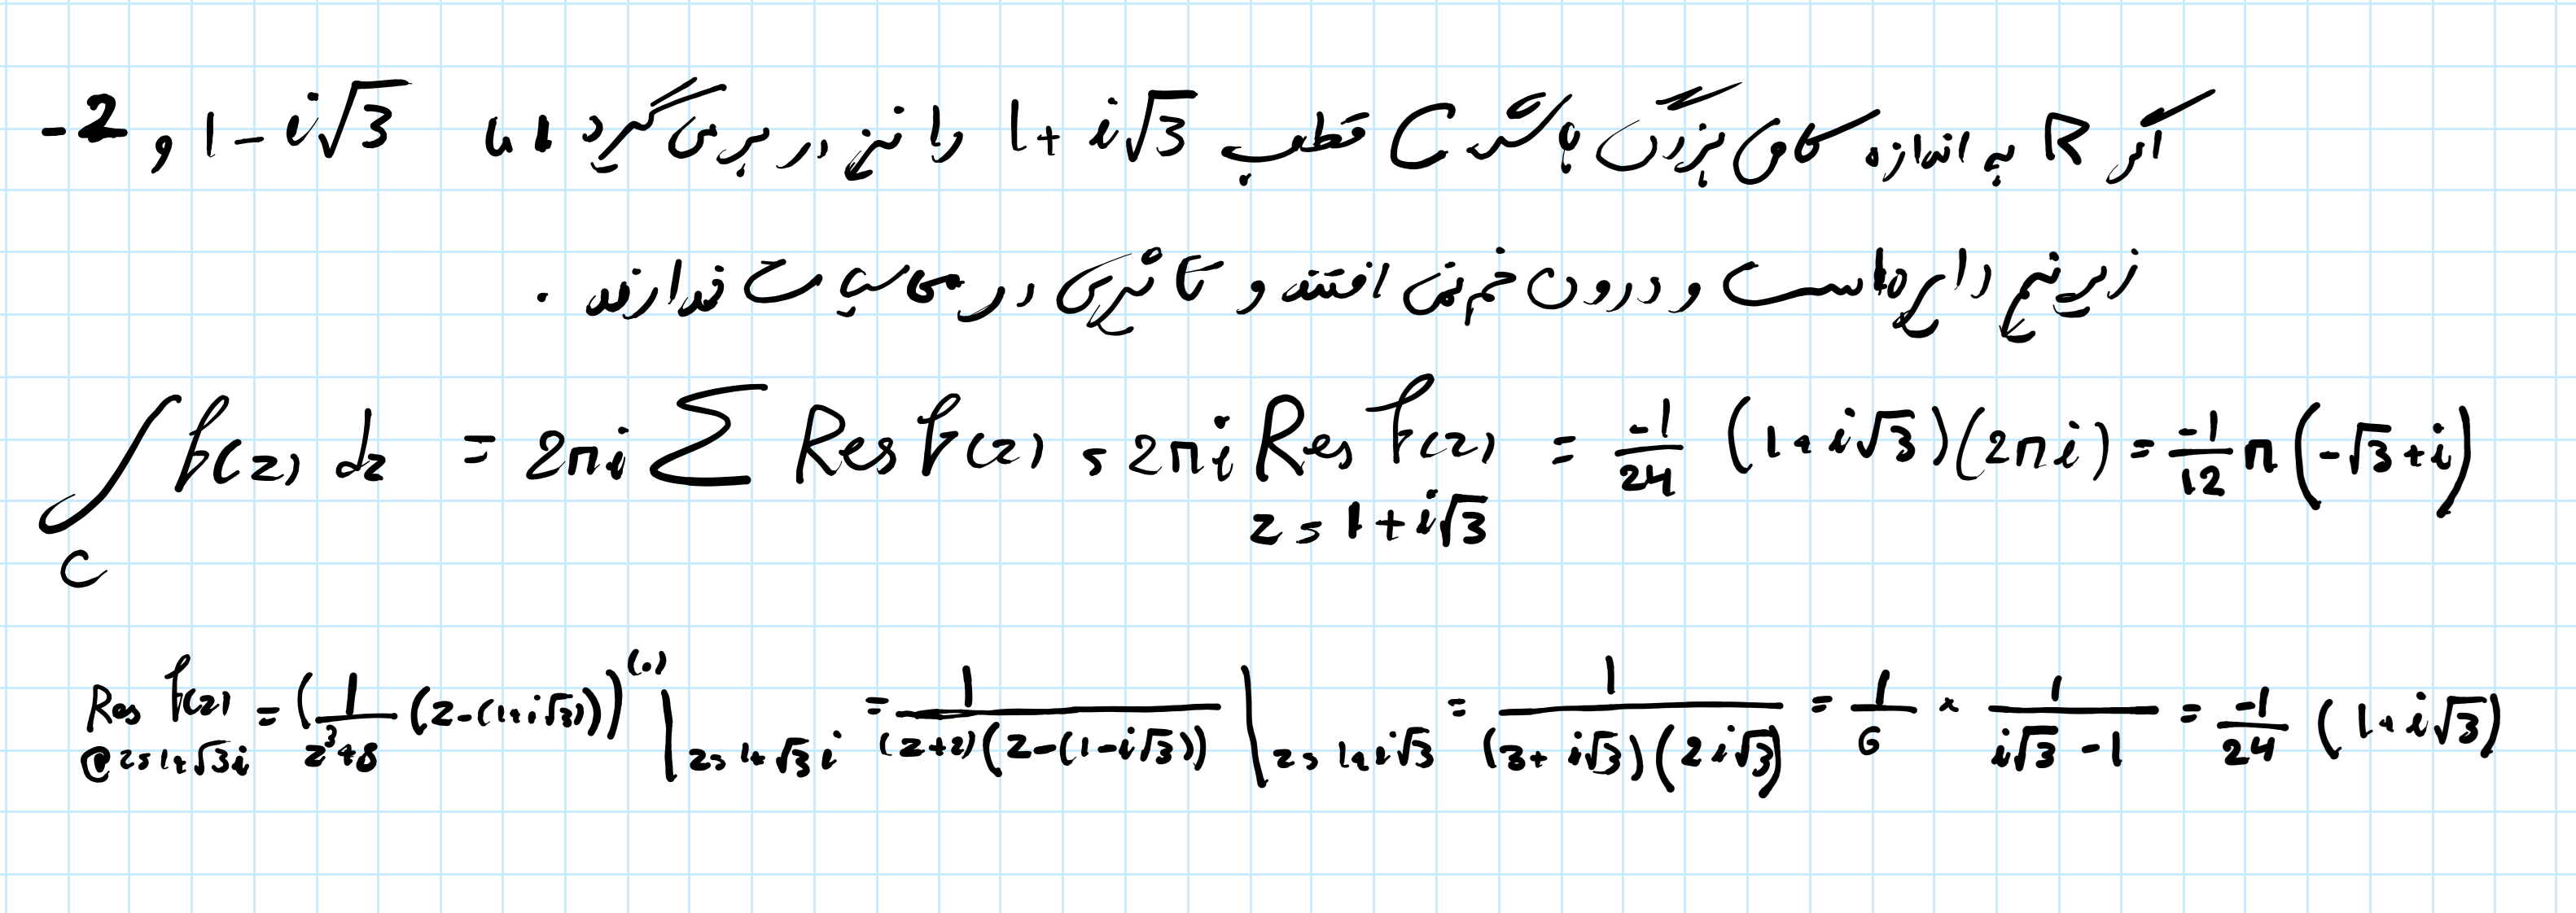 اگر R به اندازه کافی بزرگ باشد C قطب 1+i√3 را نیز در بر می گیرد اما 1-i√3 و -2
زیر نیم دایره است و درون خم نمی افتند و تاثیری در محاسبات ندارند .
∫_C f(z) dz = 2πi ∑ Res f(z) = 2πi Res_{z=1+i√3} f(z) = -1/24 (1+i√3)(2πi) = -1/12 π(-√3+i)
Res_{@z=1+√3i} f(z) = (1/(z³+8) (z-(1+i√3)))^(0) |_{z=1+√3i} = 1/((z+2)(z-(1-i√3))) |_{z=1+i√3} = 1/((3+i√3)(2i√3)) = 1/6 × 1/(i√3-1) = -1/24 (1+i√3)